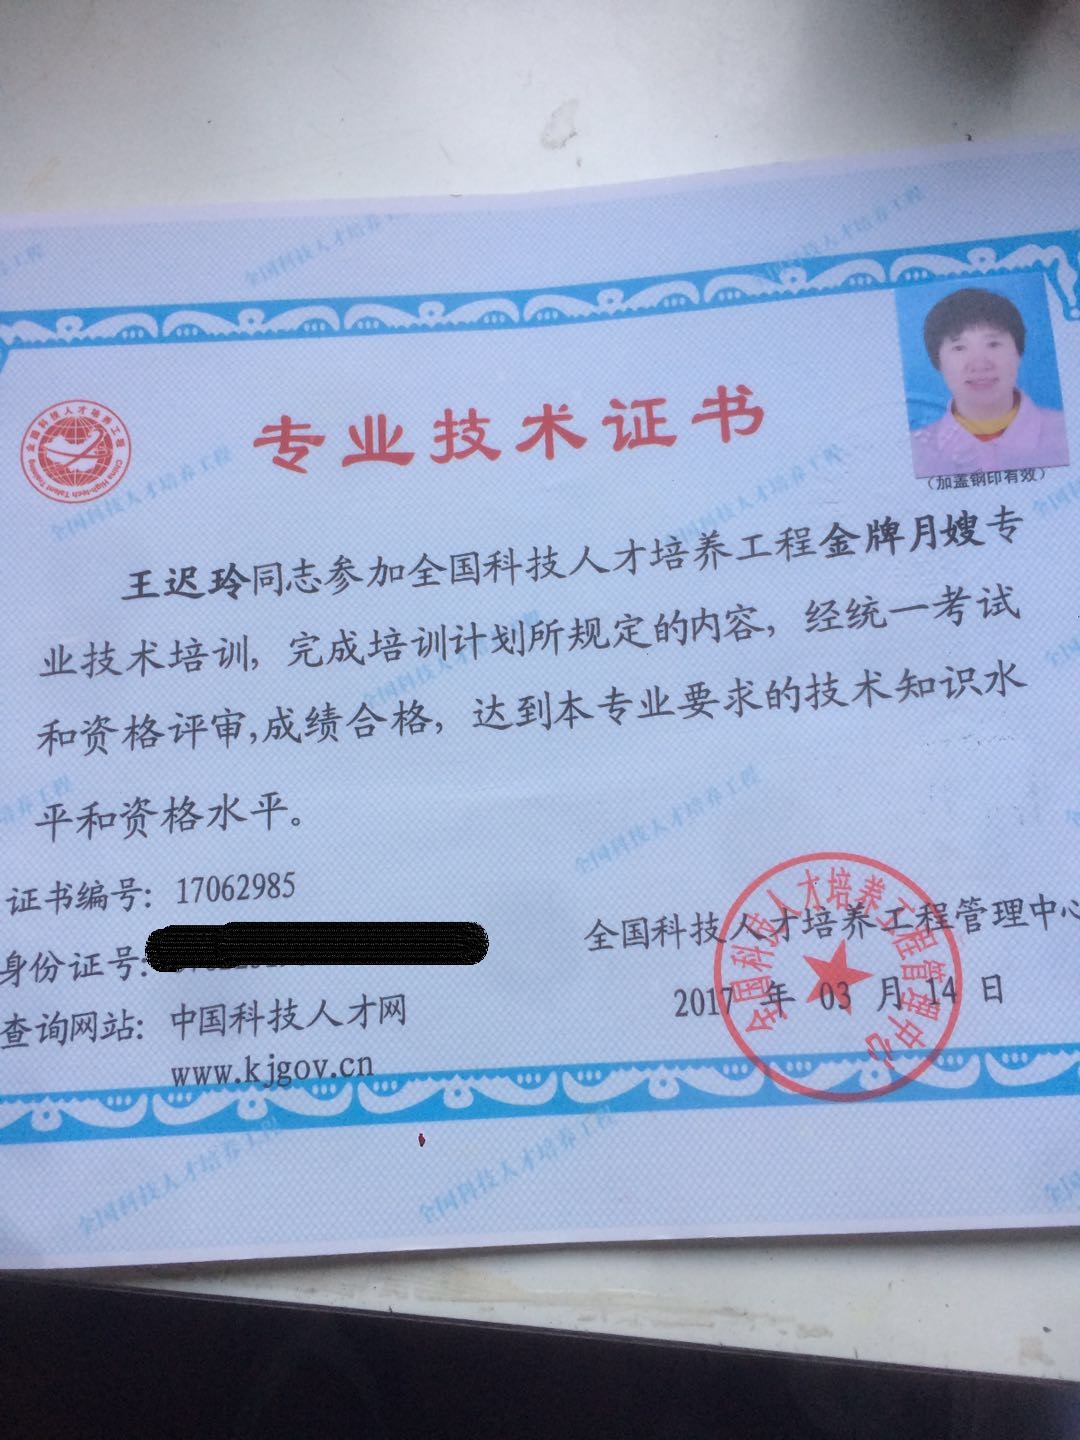 全国科技人才培养工程
China High-tech Talent Training
专业技术证书
（加盖钢印有效）
王迟玲同志参加全国科技人才培养工程金牌月嫂专
业技术培训，完成培训计划所规定的内容，经统一考试
和资格评审,成绩合格，达到本专业要求的技术知识水
平和资格水平。
证书编号：17062985
身份证号：
查询网站：中国科技人才网
www.kjgov.cn
全国科技人才培养工程管理中心
2017 年 03 月 14 日
全国科技人才培养工程管理中心